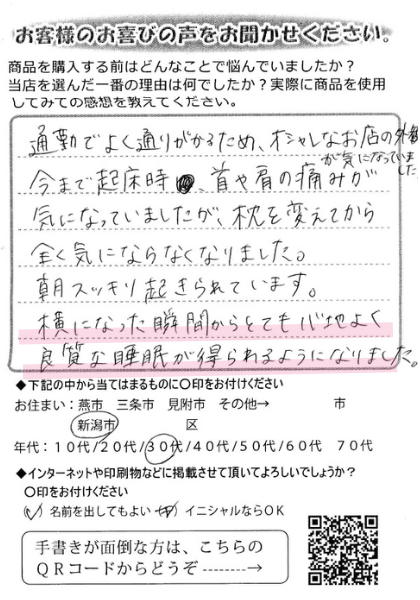 お客様のお喜びの声をお聞かせください。
商品を購入する前はどんなことで悩んでいましたか？
当店を選んだ一番の理由は何でしたか？実際に商品を使用
してみての感想を教えてください。
通勤でよく通りがかるため、オシャレなお店の外観
が気になっていま
した。
今まで起床時、首や肩の痛みが
気になっていましたが、枕を変えてから
全く気にならなくなりました。
朝スッキリ起きられています。
横になった瞬間からとても心地よく
良質な睡眠が得られるようになりました。
◆下記の中から当てはまるものに〇印をお付けください
お住まい：燕市 三条市 見附市 その他→ 市
新潟市 区
年代：１０代/２０代/３０代/４０代/５０代/６０代 ７０代
◆インターネットや印刷物などに掲載させて頂いてよろしいでしょうか？
〇印をお付けください
( ✓ ) 名前を出してもよい イニシャルならＯＫ
手書きが面倒な方は、こちらの
ＱＲコードからどうぞ--------→